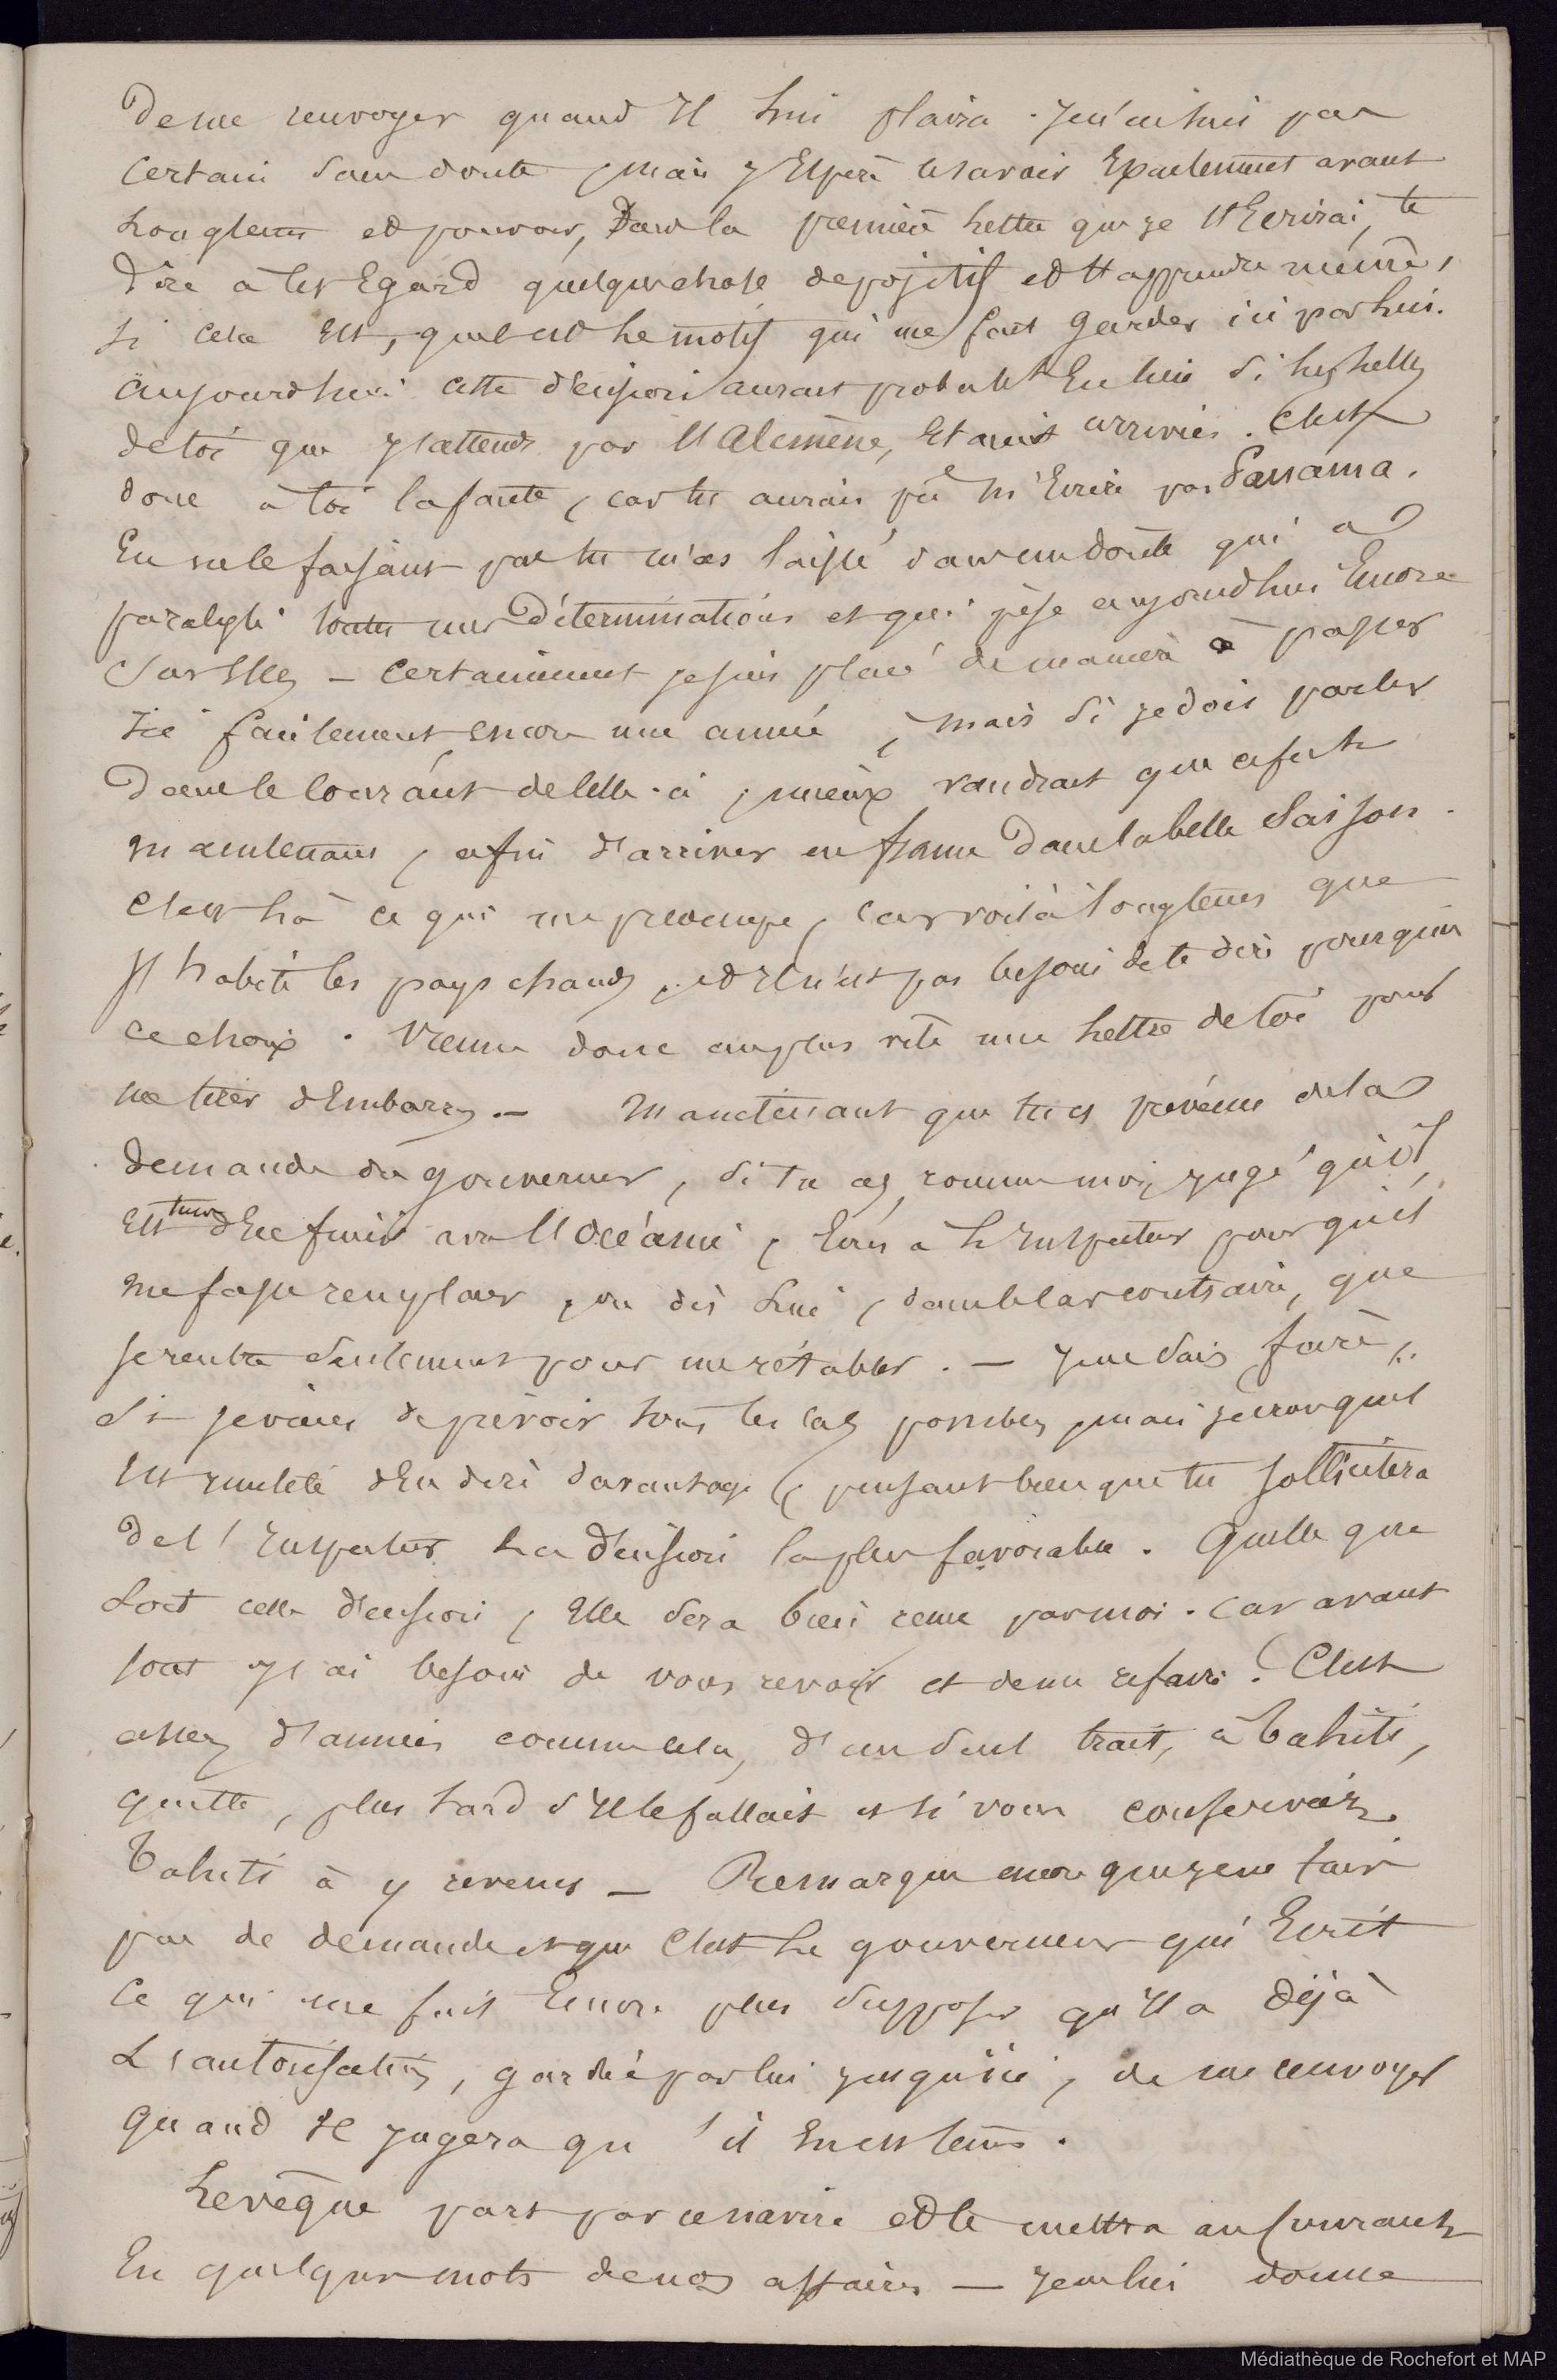 de me renvoyer quand Il lui plaira. Je n'en suis pas
certain sans doute, mais j'Espère le savoir Exactement avant
longtems et pouvoir, Dans la première lettre que je t'Ecrirai, te
dire à cet Egard quelque chose de positif et t'apprendre même,
si cela Est, quel est le motif qui me fait garder ici par lui.
aujourd'hui cette décision aurait probablt Eu lieu si les lettres
de toi que j'attends par l'Alcmène, Etaient arrivées. C'est
donc à toi la faute, car tu aurais pu m'Ecrire par Panama.
En ne le faisant pas tu m'as laissé dans un doute qui a
paralysé toutes mes Déterminations et qui pèse aujourd'hui Encore
sur Elles — Certainement je suis placé de manière à passer
Ici facilement encore une année, mais si je dois partir
dans le courant de celle-ci, mieux vaudrait que ce fut
maintenant, afin d'arriver en france Dans la belle Saison.
C'est là ce qui me préoccupe, car voilà longtems que
J'habite les pays chauds, et Il n'est pas besoin de te dire pourquoi
ce choix. Vienne donc au plus vite une lettre de toi pour
me tirer d'Embarras. — Maintenant que tu es prévenu de la
demande du gouverneur, si tu as, comme moi, jugé qu'il
Est tems d'En finir avec l'Océanie, Ecris à l'Inspecteur pour qu'il
me fasse remplacer, ou dis lui, dans le cas contraire, que
je rentre seulement pour me rétablir. — Je ne sais faire,
si je viens de prévoir tous les cas possibles, mais je crois qu'il
Est inutile d'En dire davantage, pensant bien que tu sollicitera
de l'Inspecteur la décision la plus favorable. Quelle que
soit cette décision, Elle sera bien reçue par moi. Car avant
tout j'ai besoin de vous revoir et de me refaire. C'est
assez d'années comme cela, d'un seul trait, à Tahiti,
quitte, plus tard s'Il le fallait et si vous conserviez
Tahiti à y revenir — Remarque encore que je ne fais
pas de demande et que C'est le gouverneur qui Ecrit
ce qui me fait Encore plus supposer qu'Il a déjà
L'autorisation, gardée par lui jusqu'ici, de me renvoyer
quand Il jugera qu'il En est tems.
Levêque part par ce navire et te mettra au courant
En quelques mots de nos affaires — Je lui donne
Médiathèque de Rochefort et MAP